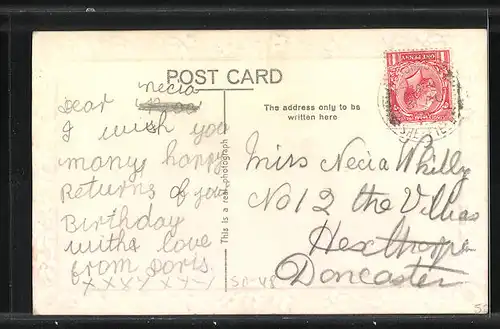 POST CARD
necia
Dear
I wish you
many happy
Returns of your
Birthday
with love
from Doris.
x x x x x x x
This is a real photograph
The address only to be
written here
Miss Necia Whilly
No 12 the Villas
Hexthorpe
Doncaster
ONE PENNY